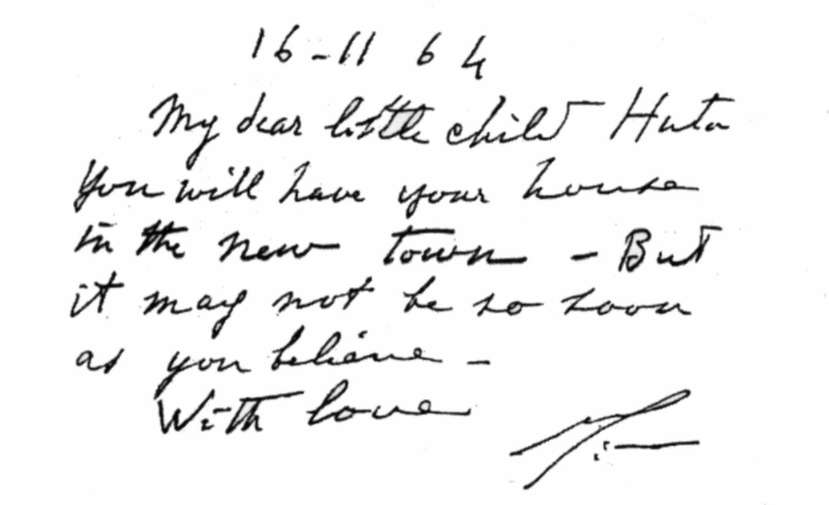 16-11 64
My dear little child Huta
You will have your house
in the new town - But
it may not be so soon
as you believe -
With love